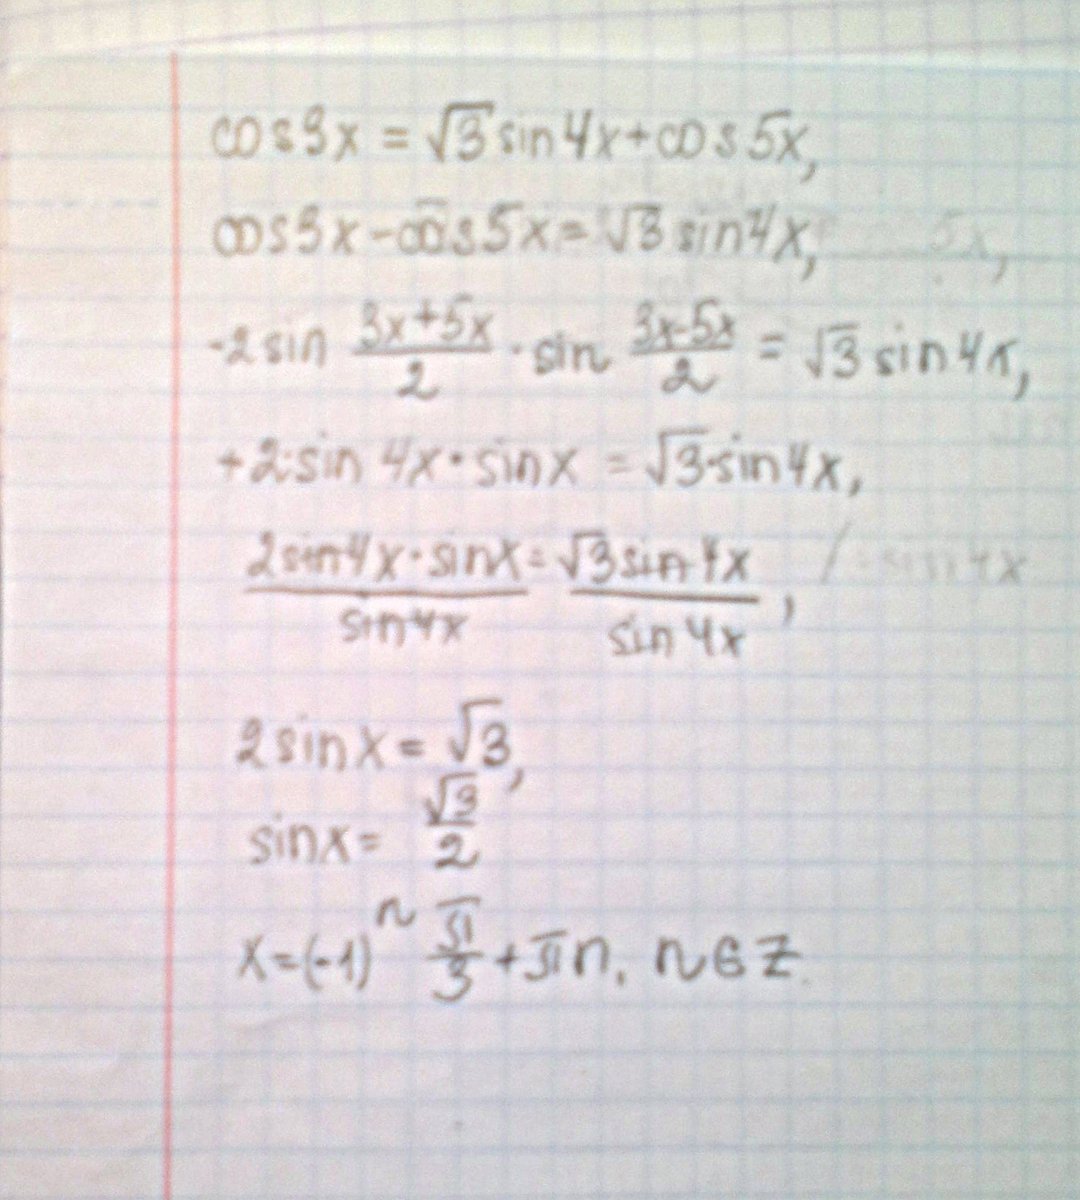 cos3x = √3 sin4x + cos5x,
cos3x - cos5x = √3 sin4x, 5x,
-2 sin (3x+5x)/2 · sin (3x-5x)/2 = √3 sin4x,
+2·sin 4x · sinx = √3·sin4x,
(2sin4x · sinx)/(sin4x) = (√3 sin4x)/(sin4x), / : sin4x
2sinx = √3,
sinx = √3/2
x = (-1)^n π/3 + πn, n ∈ Z.